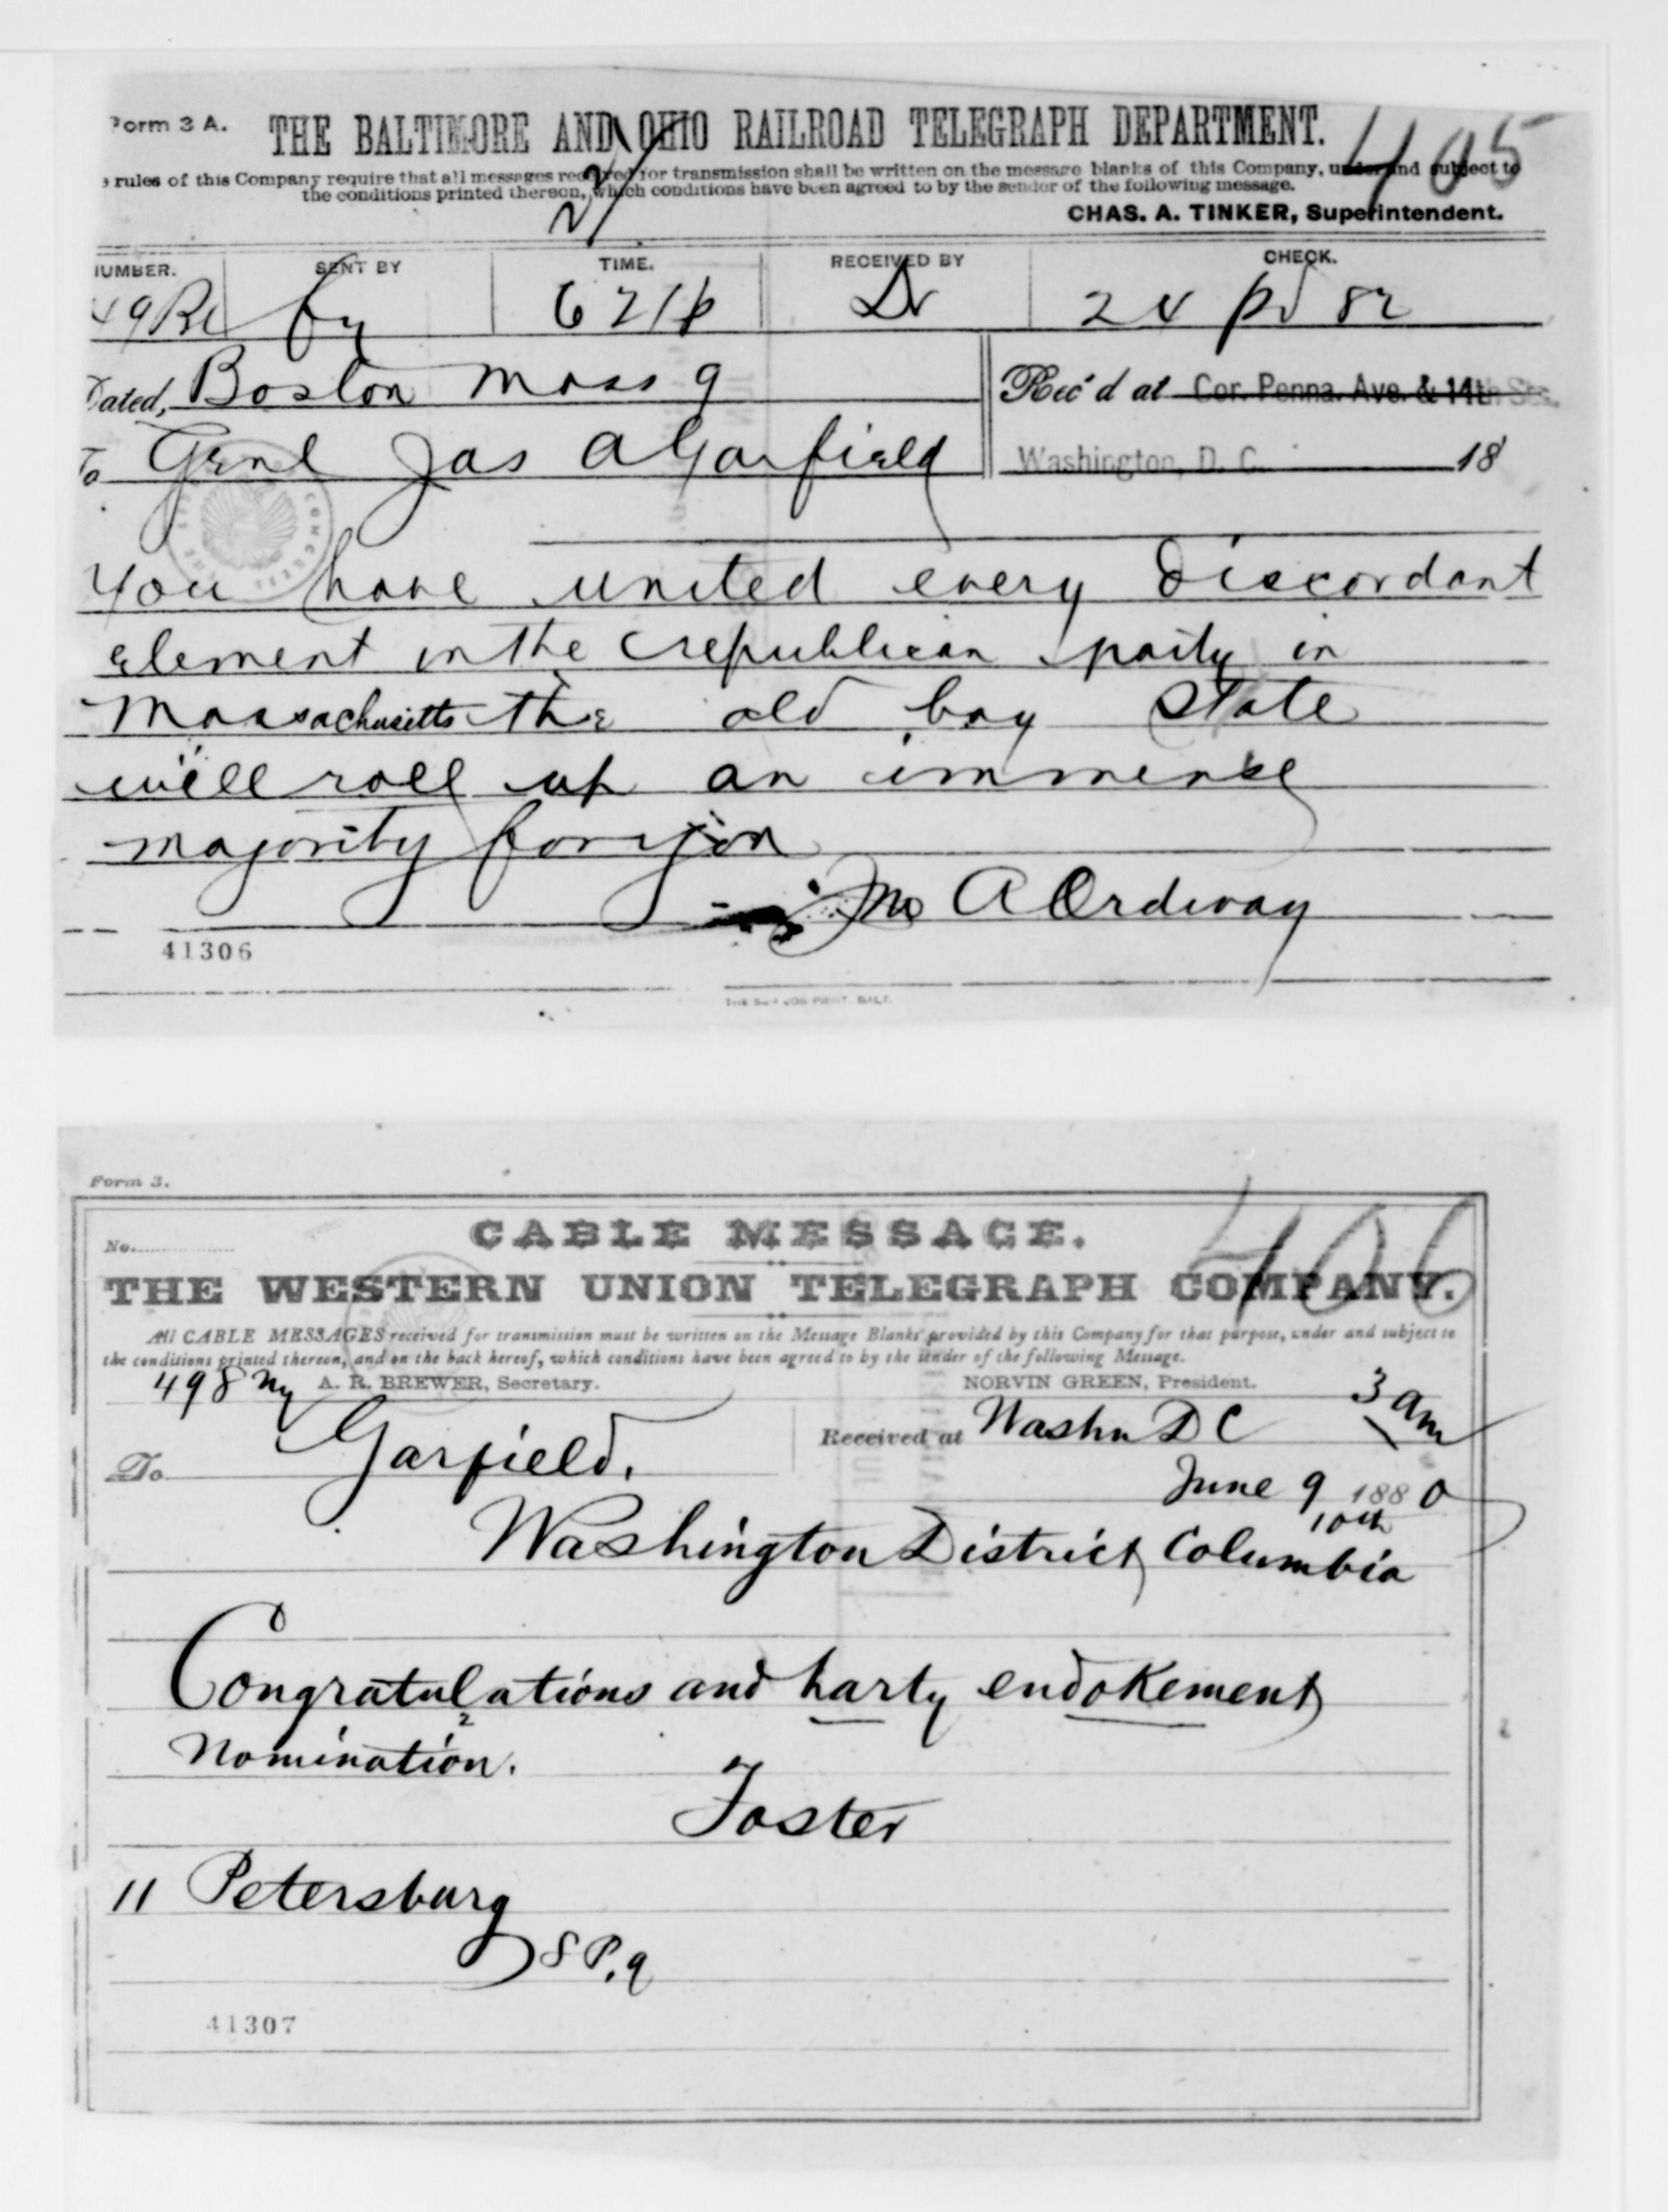 Form 3 A.
THE BALTIMORE AND OHIO RAILROAD TELEGRAPH DEPARTMENT.
405
rules of this Company require that all messages received for transmission shall be written on the message blanks of this Company, under and subject to
the conditions printed thereon, which conditions have been agreed to by the sender of the following message.
21
CHAS. A. TINKER, Superintendent.
NUMBER. SENT BY TIME. RECEIVED BY CHECK.
621p Dr 24 pd 82
Dated, Boston Mass 9
Rec'd at Cor. Penna. Ave. & 14th Sts.
To Genl Jas A Garfield
Washington, D. C. 18
You have united every discordant
element in the republican party in
Massachusetts the old bay State
will roll up an immense
majority for you
Jno A Ordway
41306
THE SUN JOB PRINT. BALT.
Form 3.
406
No.
CABLE MESSAGE.
THE WESTERN UNION TELEGRAPH COMPANY.
All CABLE MESSAGES received for transmission must be written on the Message Blanks provided by this Company for that purpose, under and subject to
the conditions printed thereon, and on the back hereof, which conditions have been agreed to by the sender of the following Message.
498 Ny A. R. BREWER, Secretary. NORVIN GREEN, President. 3 am
To Garfield. Received at Washn D C
June 9 1880
10th
Washington District Columbia
Congratulations and harty endokement
nomination.
Foster
11 Petersburg
S P. 9
41307